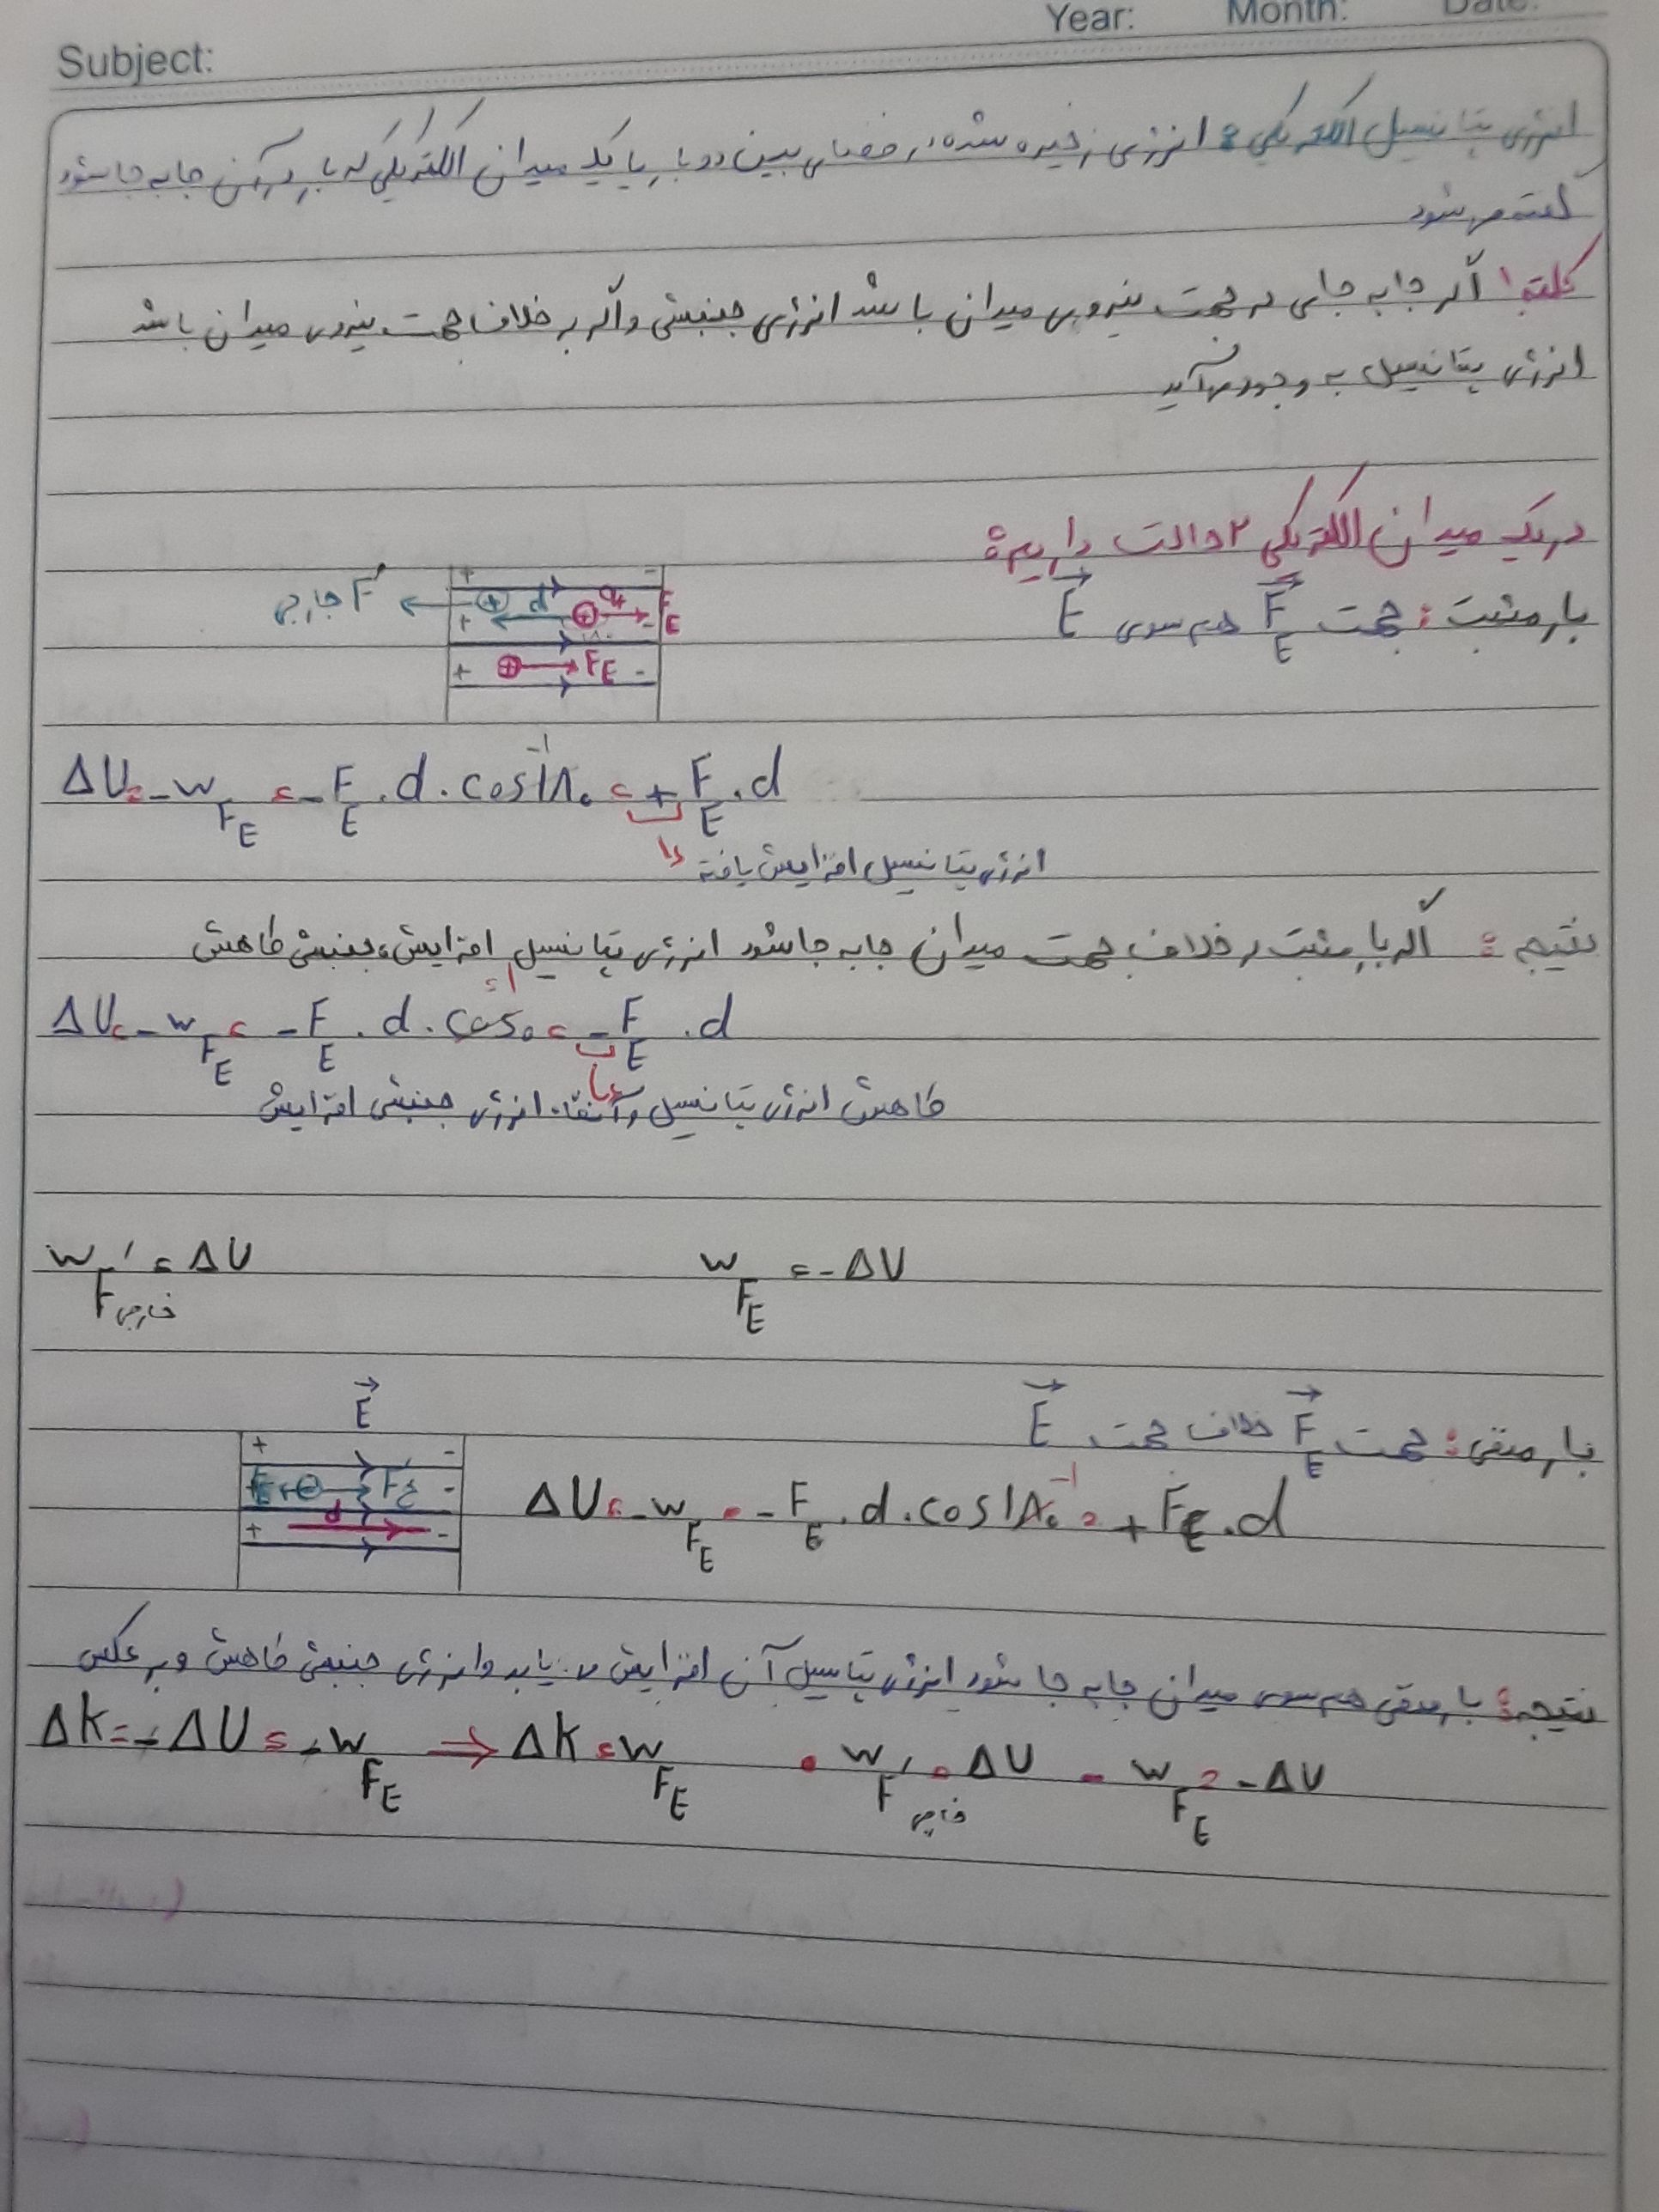 Year: Month: Date:
Subject:
انرژی پتانسیل الکتریکی: انرژی زخیره شده در فضای بین دو بار یا یک میدان الکتریکی که بار در آن جابه جا شود
گفته می شود
نکته ۱ اگر جابه جایی در جهت نیروی میدان باشد انرژی جنبشی و اگر بر خلاف جهت نیروی میدان باشد
انرژی پتانسیل به وجود می آید
در یک میدان الکتریکی ۲ حالت داریم:
بار مثبت: جهت F⃗E هم سوی E⃗
F′ خارجی
+ - ⊕ d ⊕ FE
+ ⊕ FE -
ΔU = -wFE = -FE . d . cos۱۸۰ = +FE . d
-۱
انرژی پتانسیل افزایش یافته
نتیجه: اگر بار مثبت در خلاف جهت میدان جابه جا شود انرژی پتانسیل افزایش، جنبشی کاهش
ΔU = -wFE = -FE . d . cos۰ = -FE . d
کاهش انرژی پتانسیل و انرژی جنبشی افزایش
wF′خارجی = ΔU wFE = -ΔU
بار منفی: جهت F⃗E خلاف جهت E⃗
E⃗
+ -
FE ⊖ -
+ d -
ΔU = -wFE = -FE . d . cos۱۸۰ = +FE . d
-۱
نتیجه: بار منفی هم سوی میدان جابه جا شود انرژی پتاسیل آن افزایش می یابد و انرژی جنبشی کاهش و برعکس
ΔK = -ΔU = -wFE ⇒ ΔK = wFE • wF′خارجی = ΔU - wFE = -ΔU